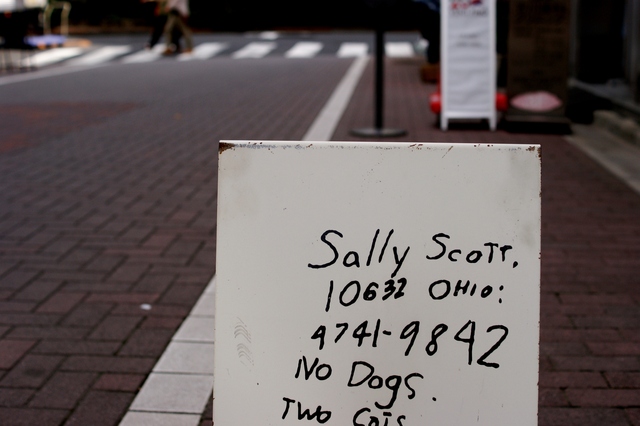 Sally Scott.
10632 OHio:
4741-9842
No Dogs.
Two Cats